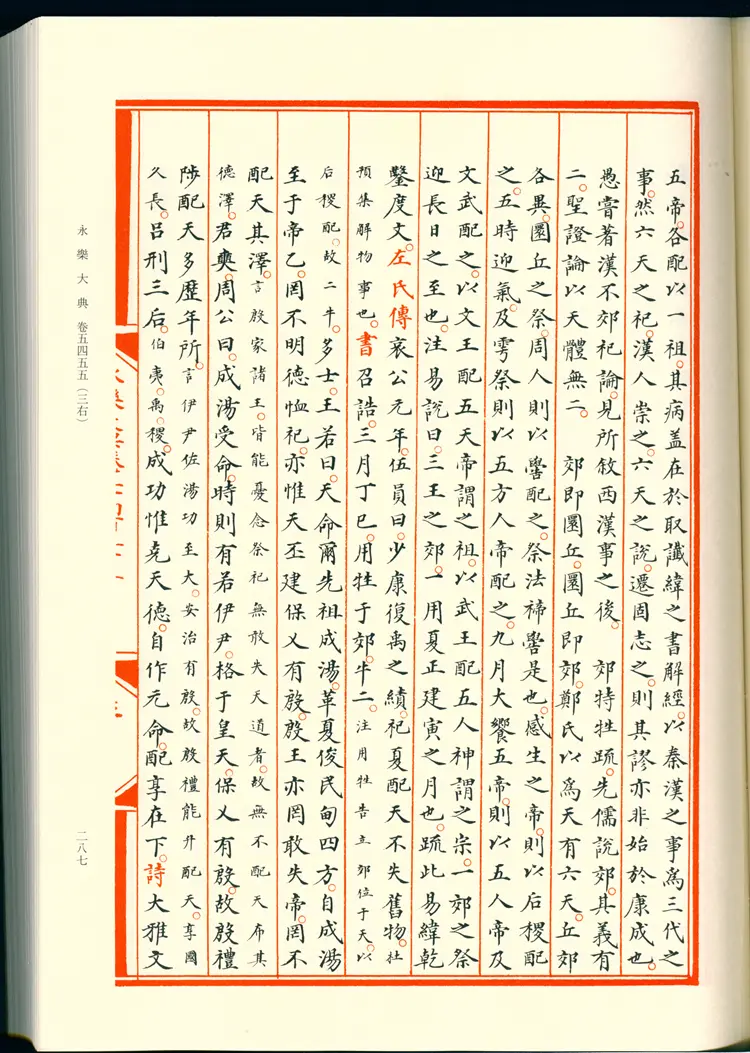 五帝。各配以一祖。其病盖在於取讖緯之書解經。以秦漢之事為三代之
事。然六天之祀。漢人崇之。六天之說。遷固志之。則其謬亦非始於康成也。
愚嘗著漢不郊祀論。見所敘西漢事之後。 郊特牲疏。先儒說郊。其義有
二。聖證論以天體無二。 郊即圜丘。圜丘即郊。鄭氏以為天有六天。丘郊
各異。圜丘之祭。周人則以嚳配之。祭法禘嚳是也。感生之帝。則以后稷配
之。五時迎氣。及雩祭則以五方人帝配之。九月大饗五帝。則以五人帝及
文武配之。以文王配五天帝謂之祖。以武王配五人神謂之宗。一郊之祭
迎長日之至也。注易說曰。三王之郊。一用夏正建寅之月也。疏此易緯乾
鑿度文。左氏傳哀公元年。伍員曰。少康復禹之績。祀夏配天不失舊物。杜
預集解物事也。書召誥。三月丁巳。用牲于郊。牛二。注用牲告立郊位于天。以
后稷配。故二牛。多士。王若曰。天命爾先祖成湯。革夏俊民甸四方。自成湯
至于帝乙。罔不明德恤祀。亦惟天丕建保乂有殷。殷王亦罔敢失帝。罔不
配天其澤。言殷家諸王。皆能憂念祭祀無敢失天道者。故無不配天布其
德澤。君奭。周公曰。成湯受命。時則有若伊尹。格于皇天。保乂有殷。故殷禮
陟配天多歷年所。言伊尹佐湯功至大。安治有殷。故殷禮能升配天。享國
久長。呂刑三后。伯夷。禹。稷。成功惟克天德。自作元命。配享在下。詩大雅文
永樂大典 卷五四五五（三右）
二八七